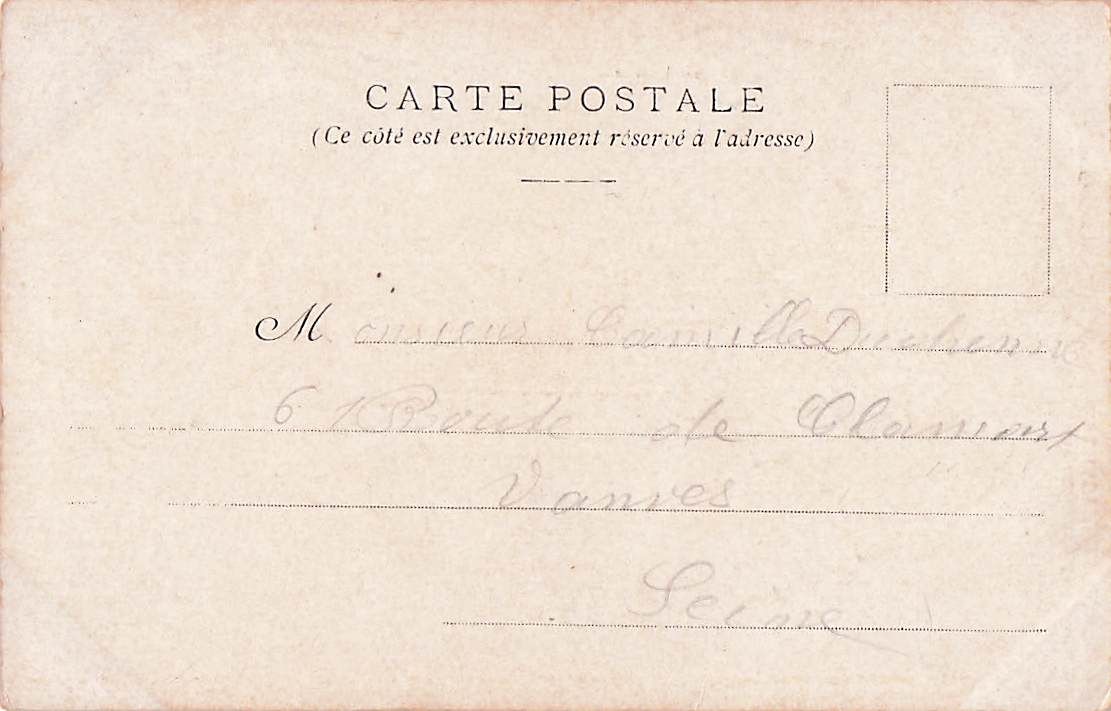 CARTE POSTALE
(Ce côté est exclusivement réservé à l'adresse)
Monsieur Camille Duchenne
6 Route de Clamart
Vanves
Seine